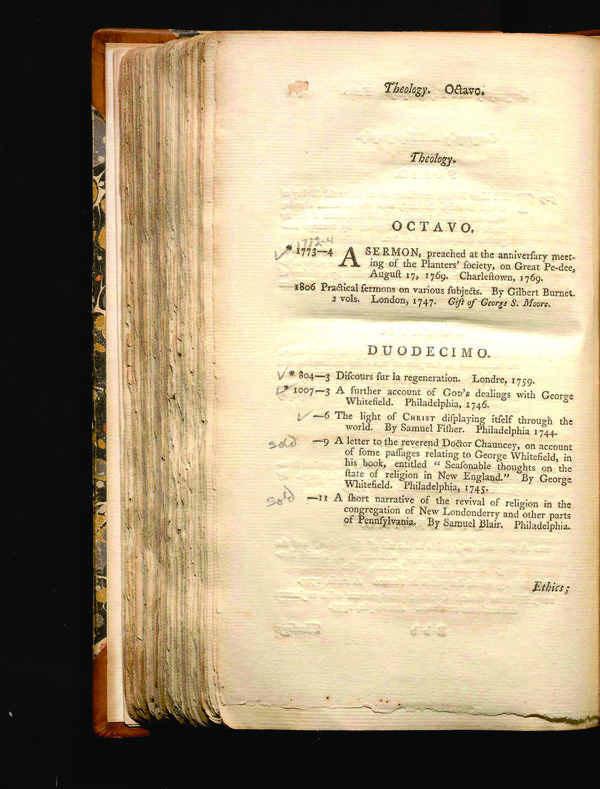 Theology. Octavo.
Theology.
OCTAVO.
1772-4
✓ * 1773—4 A SERMON, preached at the anniverſary meet-
ing of the Planters' ſociety, on Great Pe-dee,
Auguſt 17, 1769. Charleſtown, 1769.
1806 Practical ſermons on various ſubjects. By Gilbert Burnet.
2 vols. London, 1747. Gift of George S. Moore.
DUODECIMO.
✓ * 804—3 Diſcours ſur la regeneration. Londre, 1759.
* 1007—3 A further account of GOD's dealings with George
Whitefield. Philadelphia, 1746.
✓ —6 The light of CHRIST diſplaying itſelf through the
world. By Samuel Fiſher. Philadelphia 1744.
sold —9 A letter to the reverend Doctor Chauncey, on account
of ſome paſſages relating to George Whitefield, in
his book, entitled “ Seaſonable thoughts on the
ſtate of religion in New England.” By George
Whitefield. Philadelphia, 1745.
sold —11 A ſhort narrative of the revival of religion in the
congregation of New Londonderry and other parts
of Pennſylvania. By Samuel Blair. Philadelphia.
Ethics;